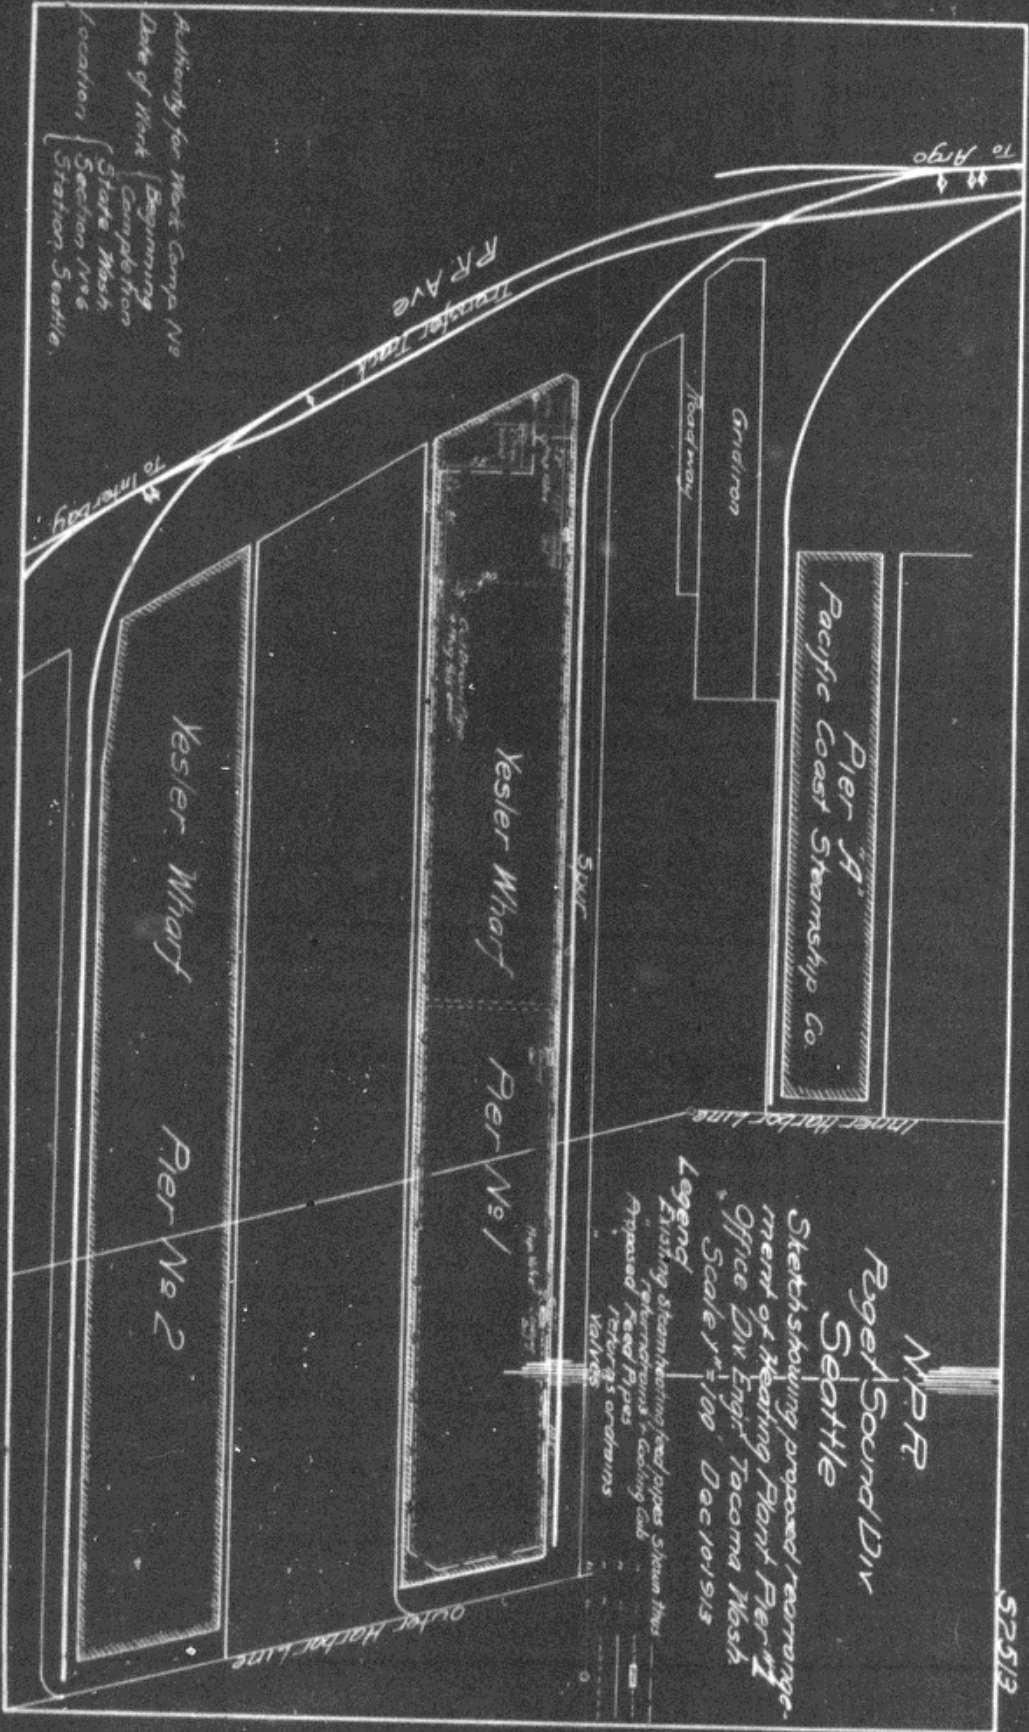 52513
N.P.R.R.
Puget Sound Div
Seattle
Sketch showing proposed rearrange-
ment of Heating Plant Pier No 1
Office Div Engr. Tacoma Wash
Scale 1"=100' Dec 10 1913
Legend
Existing steam heating feed pipes Shown thus
" return drains & Cooling Coils "
Proposed Feed Pipes "
" returns or drains "
Valves "
To Argo
Pier "A"
Pacific Coast Steamship Co.
Inner Harbor Line
Gridiron
Roadway
Spur
Yesler Wharf Pier No 1
R.R. Ave
Transfer Track
Outer Harbor Line
To Interbay
Yesler Wharf Pier No 2
Authority for Work Comp. No
Date of Work { Beginning
Completion
Location { State Wash
Section No 6
Station Seattle.